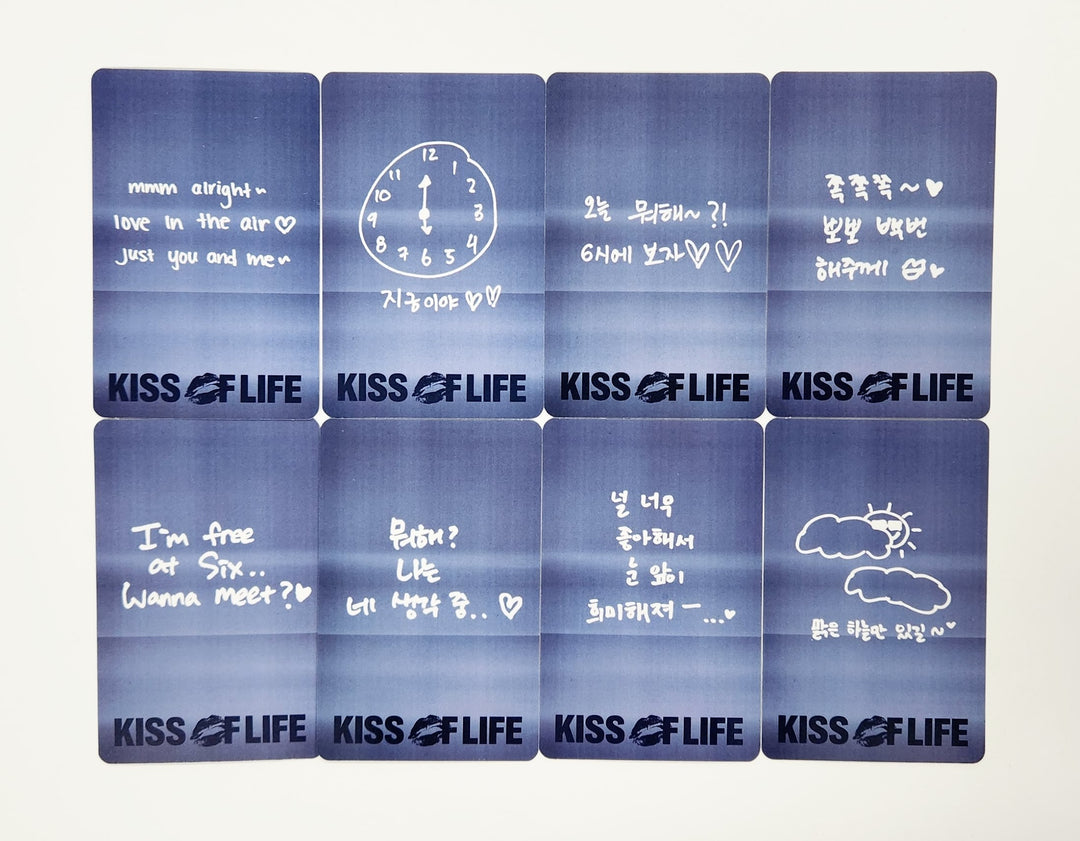 mmm alright~
love in the air♡
just you and me~
KISS OF LIFE
12
11 1
10 2
9 3
8 4
7 6 5
지금이야♡♡
KISS OF LIFE
오늘 뭐해~?!
6시에 보자♡♡
KISS OF LIFE
쪽쪽쪽~♥
뽀뽀 백번
해주께 ♥
KISS OF LIFE
I'm free
at Six..
Wanna meet?♥
KISS OF LIFE
뭐해?
나는
네 생각 중..♡
KISS OF LIFE
널 너무
좋아해서
눈 앞이
희미해져ㅡ...♥
KISS OF LIFE
맑은 하늘만 있길~♥
KISS OF LIFE